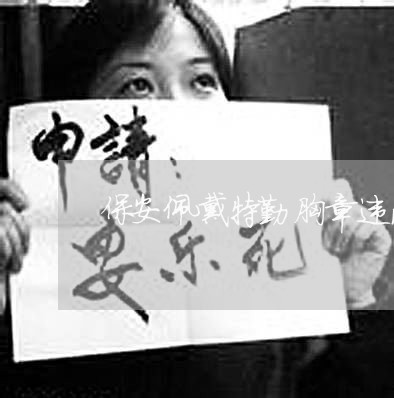 申請：
保安佩戴特勤胸章违
安乐死